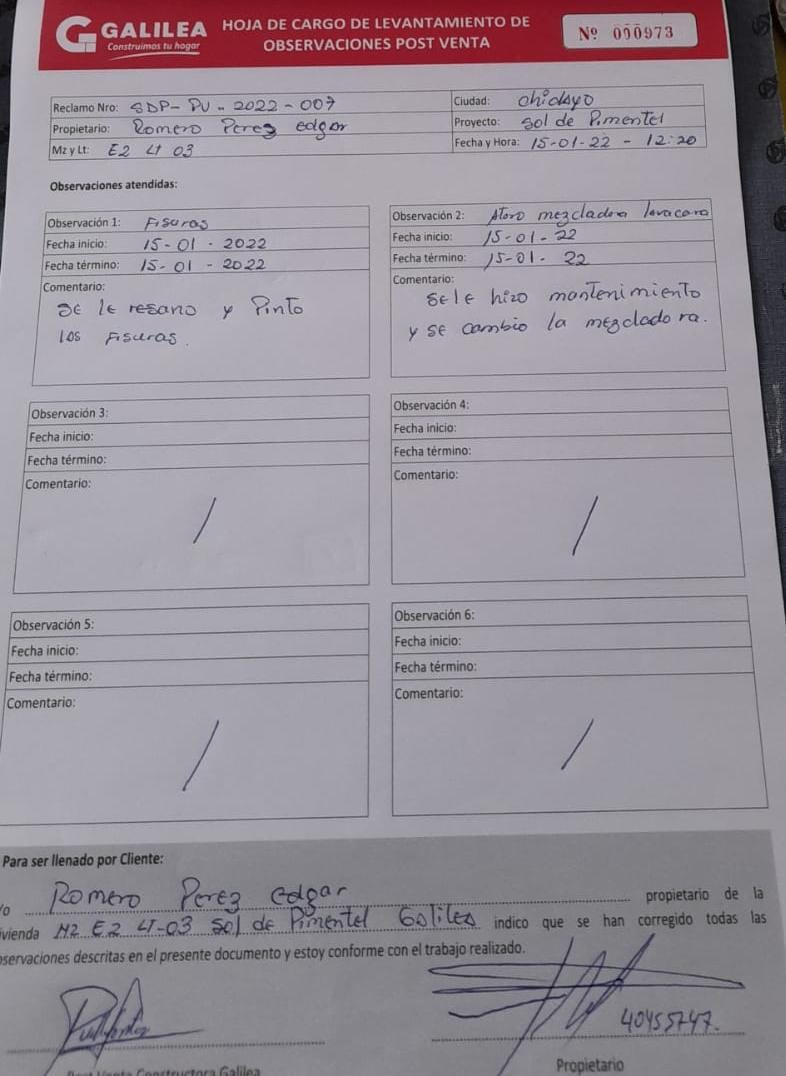 GALILEA
Construimos tu hogar
HOJA DE CARGO DE LEVANTAMIENTO DE
OBSERVACIONES POST VENTA
Nº 000973
Reclamo Nro: SDP-PV-2022-007
Ciudad: chiclayo
Propietario: Romero Perez edgar
Proyecto: sol de Pimentel
Mz y Lt: E2 LT 03
Fecha y Hora: 15-01-22 - 12:20
Observaciones atendidas:
Observación 1: Fisuras
Fecha inicio: 15-01-2022
Fecha término: 15-01-2022
Comentario:
se le resano y Pinto
las Fisuras.
Observación 2: Atoro mezcladora lavacara
Fecha inicio: 15-01-22
Fecha término: 15-01-22
Comentario:
se le hizo mantenimiento
y se cambio la mezcladora.
Observación 3:
Fecha inicio:
Fecha término:
Comentario:
/
Observación 4:
Fecha inicio:
Fecha término:
Comentario:
/
Observación 5:
Fecha inicio:
Fecha término:
Comentario:
/
Observación 6:
Fecha inicio:
Fecha término:
Comentario:
/
Para ser llenado por Cliente:
/o Romero Perez edgar propietario de la
ivienda MZ E2 LT-03 Sol de Pimentel Galilea indico que se han corregido todas las
bservaciones descritas en el presente documento y estoy conforme con el trabajo realizado.
40455747.
Post Venta Constructora Galilea
Propietario